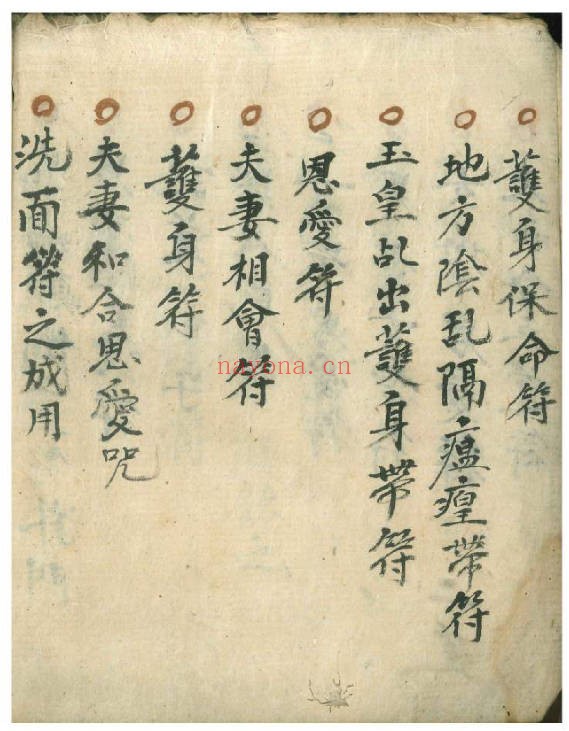 護身保命符
地方陰乱隔瘟瘟帶符
玉皇乩出護身帶符
恩愛符
夫妻相會符
護身符
夫妻和合恩愛咒
洗面符之成用
nayona.cn